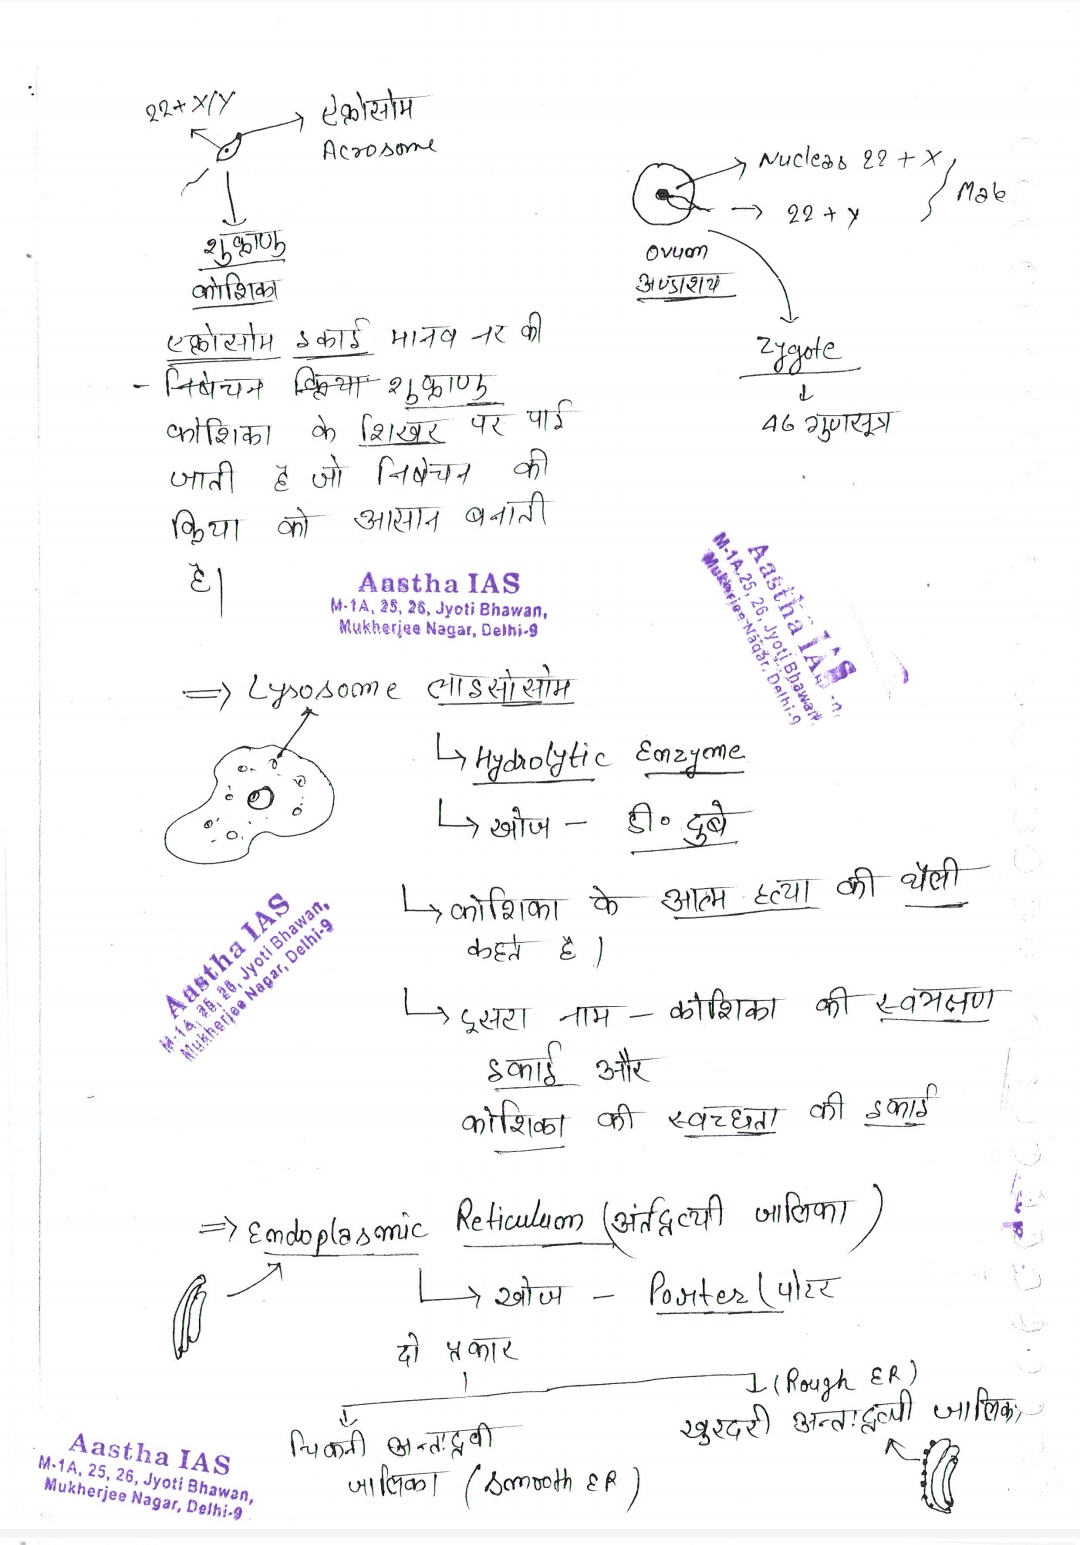 22+ X/Y
एक्रोसोम
Acrosome
शुक्राणु
कोशिका
Nucleas 22 + X
22 + Y
Male
Ovum
अण्डाशय
Zygote
46 गुणसूत्र
एक्रोसोम इकाई मानव नर की
- निषेचन क्रिया शुक्राणु
कोशिका के शिखर पर पाई
जाती है जो निषेचन की
क्रिया को आसान बनाती
है।
Aastha IAS
M-1A, 25, 26, Jyoti Bhawan,
Mukherjee Nagar, Delhi-9
Aastha IAS
M-1A, 25, 26, Jyoti Bhawan,
Mukherjee Nagar, Delhi-9
=> Lysosome लाइसोसोम
Hydrolytic Enzyme
खोज - डी० दुबे
कोशिका के आत्म हत्या की थैली
कहते है।
दूसरा नाम - कोशिका की स्वभक्षण
इकाई और
कोशिका की स्वच्छता की इकाई
Aastha IAS
M-1A, 25, 26, Jyoti Bhawan,
Mukherjee Nagar, Delhi-9
=> Endoplasmic Reticulum (अंर्तद्रव्यी जालिका)
खोज - Porter (पोटर
दो प्रकार
(Rough ER)
खुरदरी अन्तःद्रव्यी जालिका
चिकनी अन्तःद्रवी
जालिका (Smooth ER)
Aastha IAS
M-1A, 25, 26, Jyoti Bhawan,
Mukherjee Nagar, Delhi-9